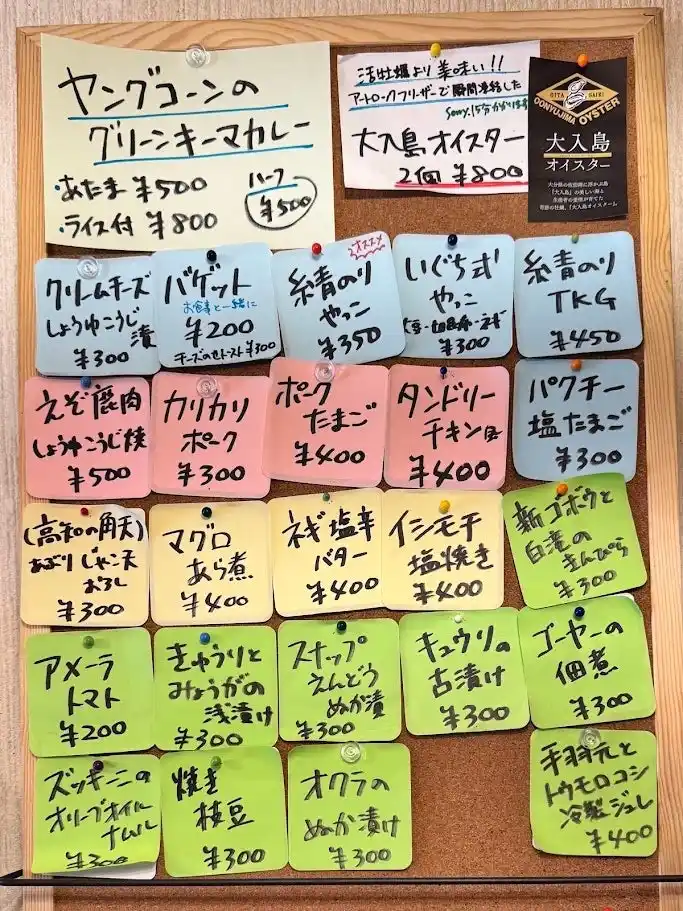 ヤングコーンの
グリーンキーマカレー
・あたま ¥500
・ライス付 ¥800
ハーフ
¥500
活牡蠣より美味い!!
アートロックフリーザーで瞬間凍結した
Sorry,15分かかります
大入島オイスター
2個 ¥800
OITA SAIKI
OONYUJIMA OYSTER
大入島
オイスター
クリームチーズ
しょうゆこうじ
漬
¥300
バゲット
お食事と一緒に
¥200
チーズのせトースト¥300
オススメ
糸青のり
やっこ
¥350
いぐち式
やっこ
¥300
糸青のり
TKG
¥450
えぞ鹿肉
しょうゆこうじ焼
¥500
カリカリ
ポーク
¥300
ポーク
たまご
¥400
タンドリー
チキン
¥400
パクチー
塩たまご
¥300
(高知の角天)
あぶりじゃこ天
おろし
¥300
マグロ
あら煮
¥400
ネギ塩辛
バター
¥400
イシモチ
塩焼き
¥400
新ゴボウと
白滝の
きんぴら
¥300
アメーラ
トマト
¥200
きゅうりと
みょうがの
浅漬け
¥300
スナップ
えんどう
ぬか漬
¥300
キュウリの
古漬け
¥300
ゴーヤーの
佃煮
¥300
ズッキーニの
オリーブオイル
ナムル
¥300
焼き
枝豆
¥300
オクラの
ぬか漬け
¥300
手羽元と
トウモロコシ
冷製ジュレ
¥400